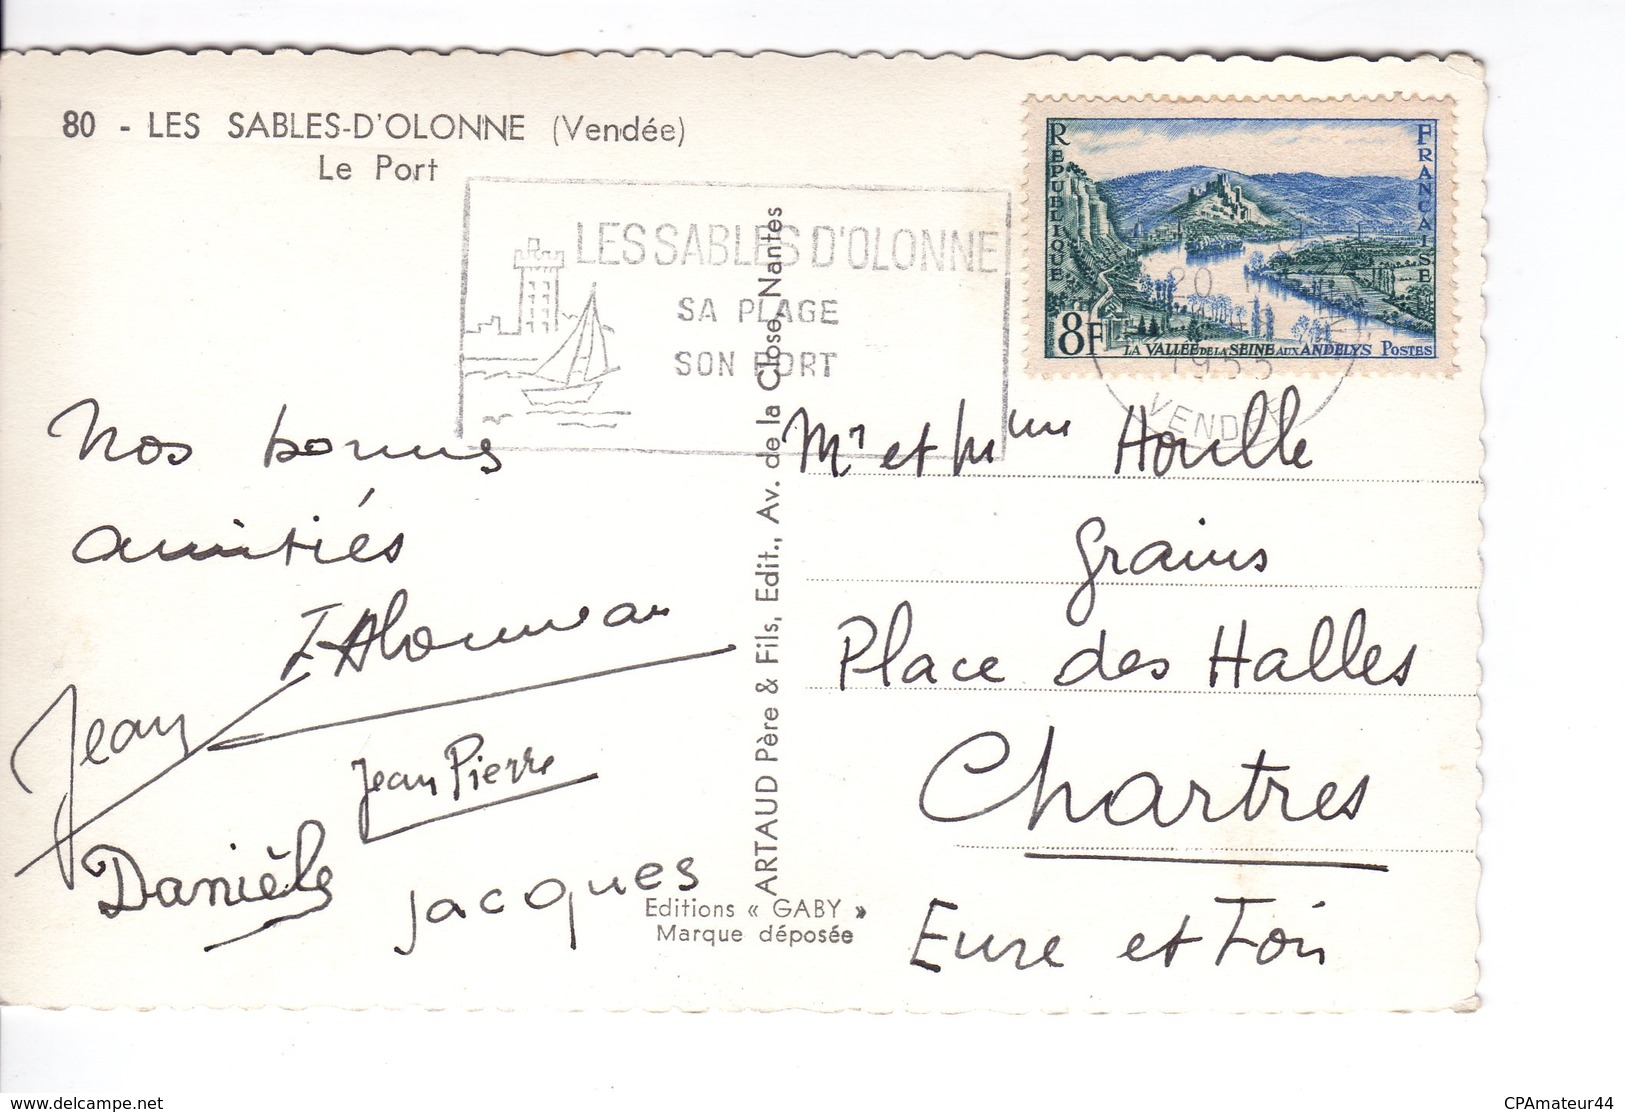 80 - LES SABLES-D'OLONNE (Vendée)
Le Port
LES SABLES D'OLONNE
SA PLAGE
SON PORT
RÉPUBLIQUE
FRANÇAISE
8F
LA VALLÉE DE LA SEINE AUX ANDELYS POSTES
20
1955
VENDÉE
Nos bonnes
amitiés
Jean
Jean Pierre
Danièle
Jacques
ARTAUD Père & Fils, Edit., Av. de la Close, Nantes
Editions « GABY »
Marque déposée
Mr et Mme Houlle
grains
Place des Halles
Chartres
Eure et Loir
delcampe.net
CPAmateur44